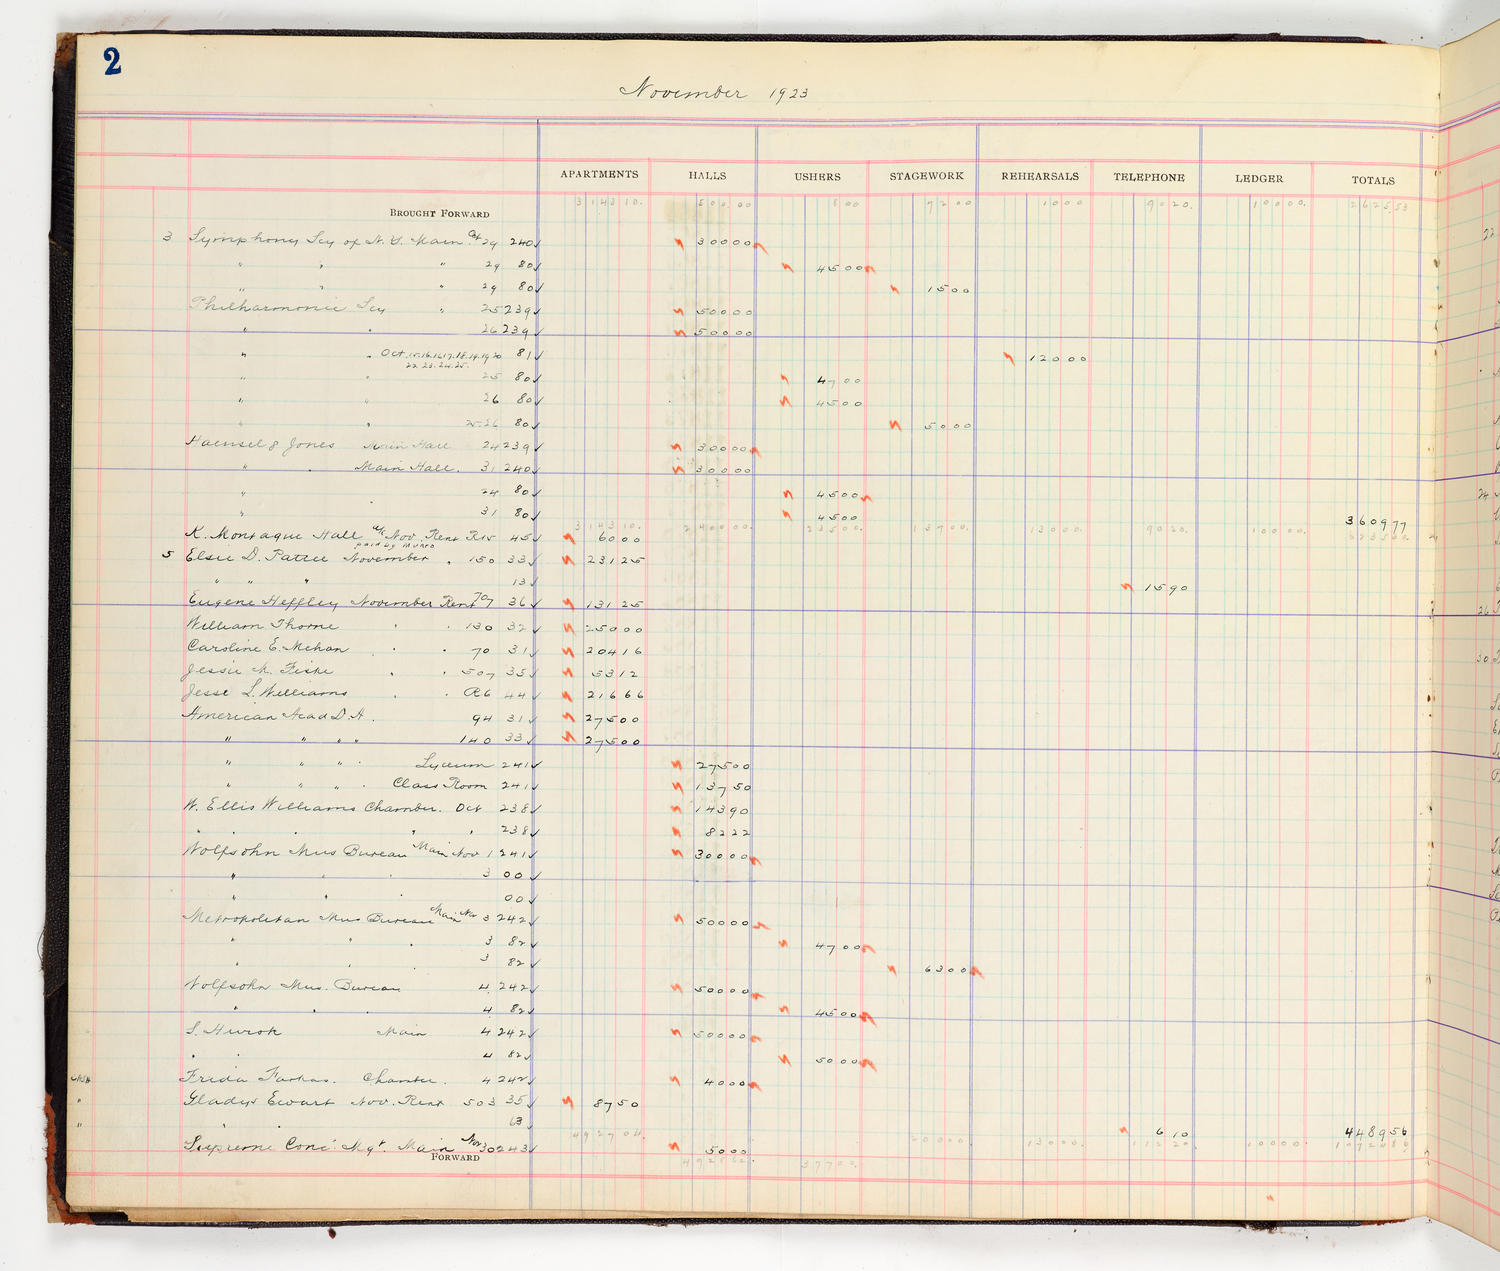 2
November 1923
APARTMENTS HALLS USHERS STAGEWORK REHEARSALS TELEPHONE LEDGER TOTALS
BROUGHT FORWARD 31431 0. 500.00 8 00 92 00 10 00 90 20. 100 00. 2625.53
3 Symphony Socy of N.Y. Main Oct 29 240 ✓ 300 00
" " " 29 80 ✓ 45 00
" " " 29 80 ✓ 15 00
Philharmonic Socy " 25 239 ✓ 500 00
" " 26 239 ✓ 500 00
" " Oct. 81 ✓ 120 00
22. 23. 24. 25.
" " 25 80 ✓ 47 00
" " 26 80 ✓ 45 00
" " 25-26 80 ✓ 50 00
Haensel & Jones Main Hall 24 239 ✓ 300 00
" " Main Hall. 31 240 ✓ 300 00
" 24 80 ✓ 45 00
" 31 80 ✓ 45 00
3609 77
K. Montague Hall a/c Nov. Rent 45 ✓ 60 00
paid by Munro
5 Elsie D. Pattee November " 150 33 ✓ 231 25
" " " 13 ✓ 15 90
Eugene Heffley November Rent 707 36 ✓ 131 25
William Thorne " " 130 32 ✓ 250 00
Caroline E. Mehan " " 70 31 ✓ 204 16
Jessie M. Fiske " " 507 35 ✓ 53 12
Jesse L. Williams " " 44 ✓ 216 66
American Acad D.A. 94 31 ✓ 275 00
" " " " 140 33 ✓ 275 00
" " " " Lyceum 241 ✓ 275 00
" " " " Class Room 241 ✓ 137 50
W. Ellis Williams Chamber. Oct 238 ✓ 143 90
" " " " " 238 ✓ 82 22
Wolfsohn Mus Bureau Main Nov 1 241 ✓ 300 00
" " " 3 00 ✓
" " " 00 ✓
Metropolitan Mus Bureau Main Nov 3 242 ✓ 500 00
" " " 3 82 ✓ 47 00
" " " 3 82 ✓ 63 00
Wolfsohn Mus. Bureau 4 242 ✓ 500 00
" " " 4 82 ✓ 45 00
S. Hurok Main 4 242 ✓ 500 00
" " 4 82 ✓ 50 00
CASH Frida Farkas. Chamber. 4 242 ✓ 40 00
" Gladys Ewart Nov. Rent 503 35 ✓ 87 50
" " " 63 ✓ 6 10
4489 56
Supreme Conc. Mgt. Main Nov 30 243 ✓ 50 00
FORWARD